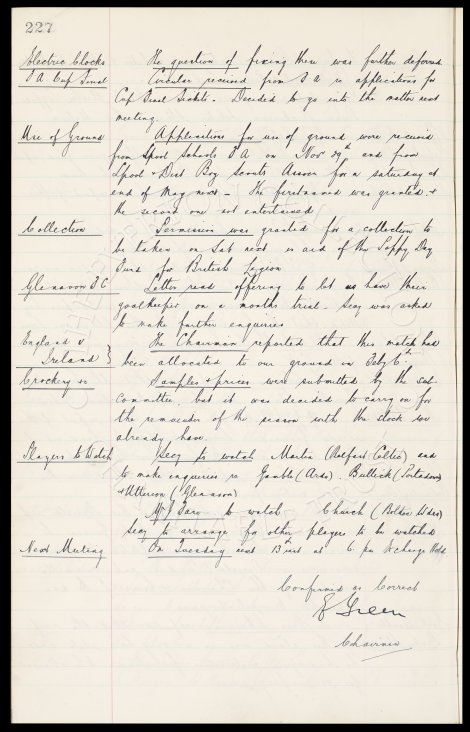 227
Electric Clocks The question of fixing these was further deferred.
F A Cup Final Circular received from F A re applications for
Cup Final Tickets. Decided to go into the matter next
meeting.
Use of Ground Applications for use of ground were received
from Lpool Schools F A on Nov 29th and from
Lpool & Dist Boy Scouts Assoc for a Saturday at
end of May next. The firstnamed was granted &
the second one not entertained
Collection Permission was granted for a collection to
be taken on Sat next in aid of the Poppy Day
Fund for British Legion
Glenavon F C Letter read offering to let us have their
goalkeeper on a months trial. Secy was asked
to make further enquiries
England v The Chairman reported that this match had
Ireland } been allocated to our ground on Feby 6th
Crockery &c Samples & prices were submitted by the sub
Committee, but it was decided to carry on for
the remainder of the season with the stock we
already have.
Players to Watch Secy to watch Martin (Belfast Celtic) and
to make enquiries re Gamble (Ards). Bullick (Portadown)
& (Glenavon)
Mr to watch Church (Bolder Utdes)
Secy to arrange for other players to be watched
Next Meeting On Tuesday next 13 inst at 6. pm Exchange Hotel
Confirmed as Correct
E Green
Chairman